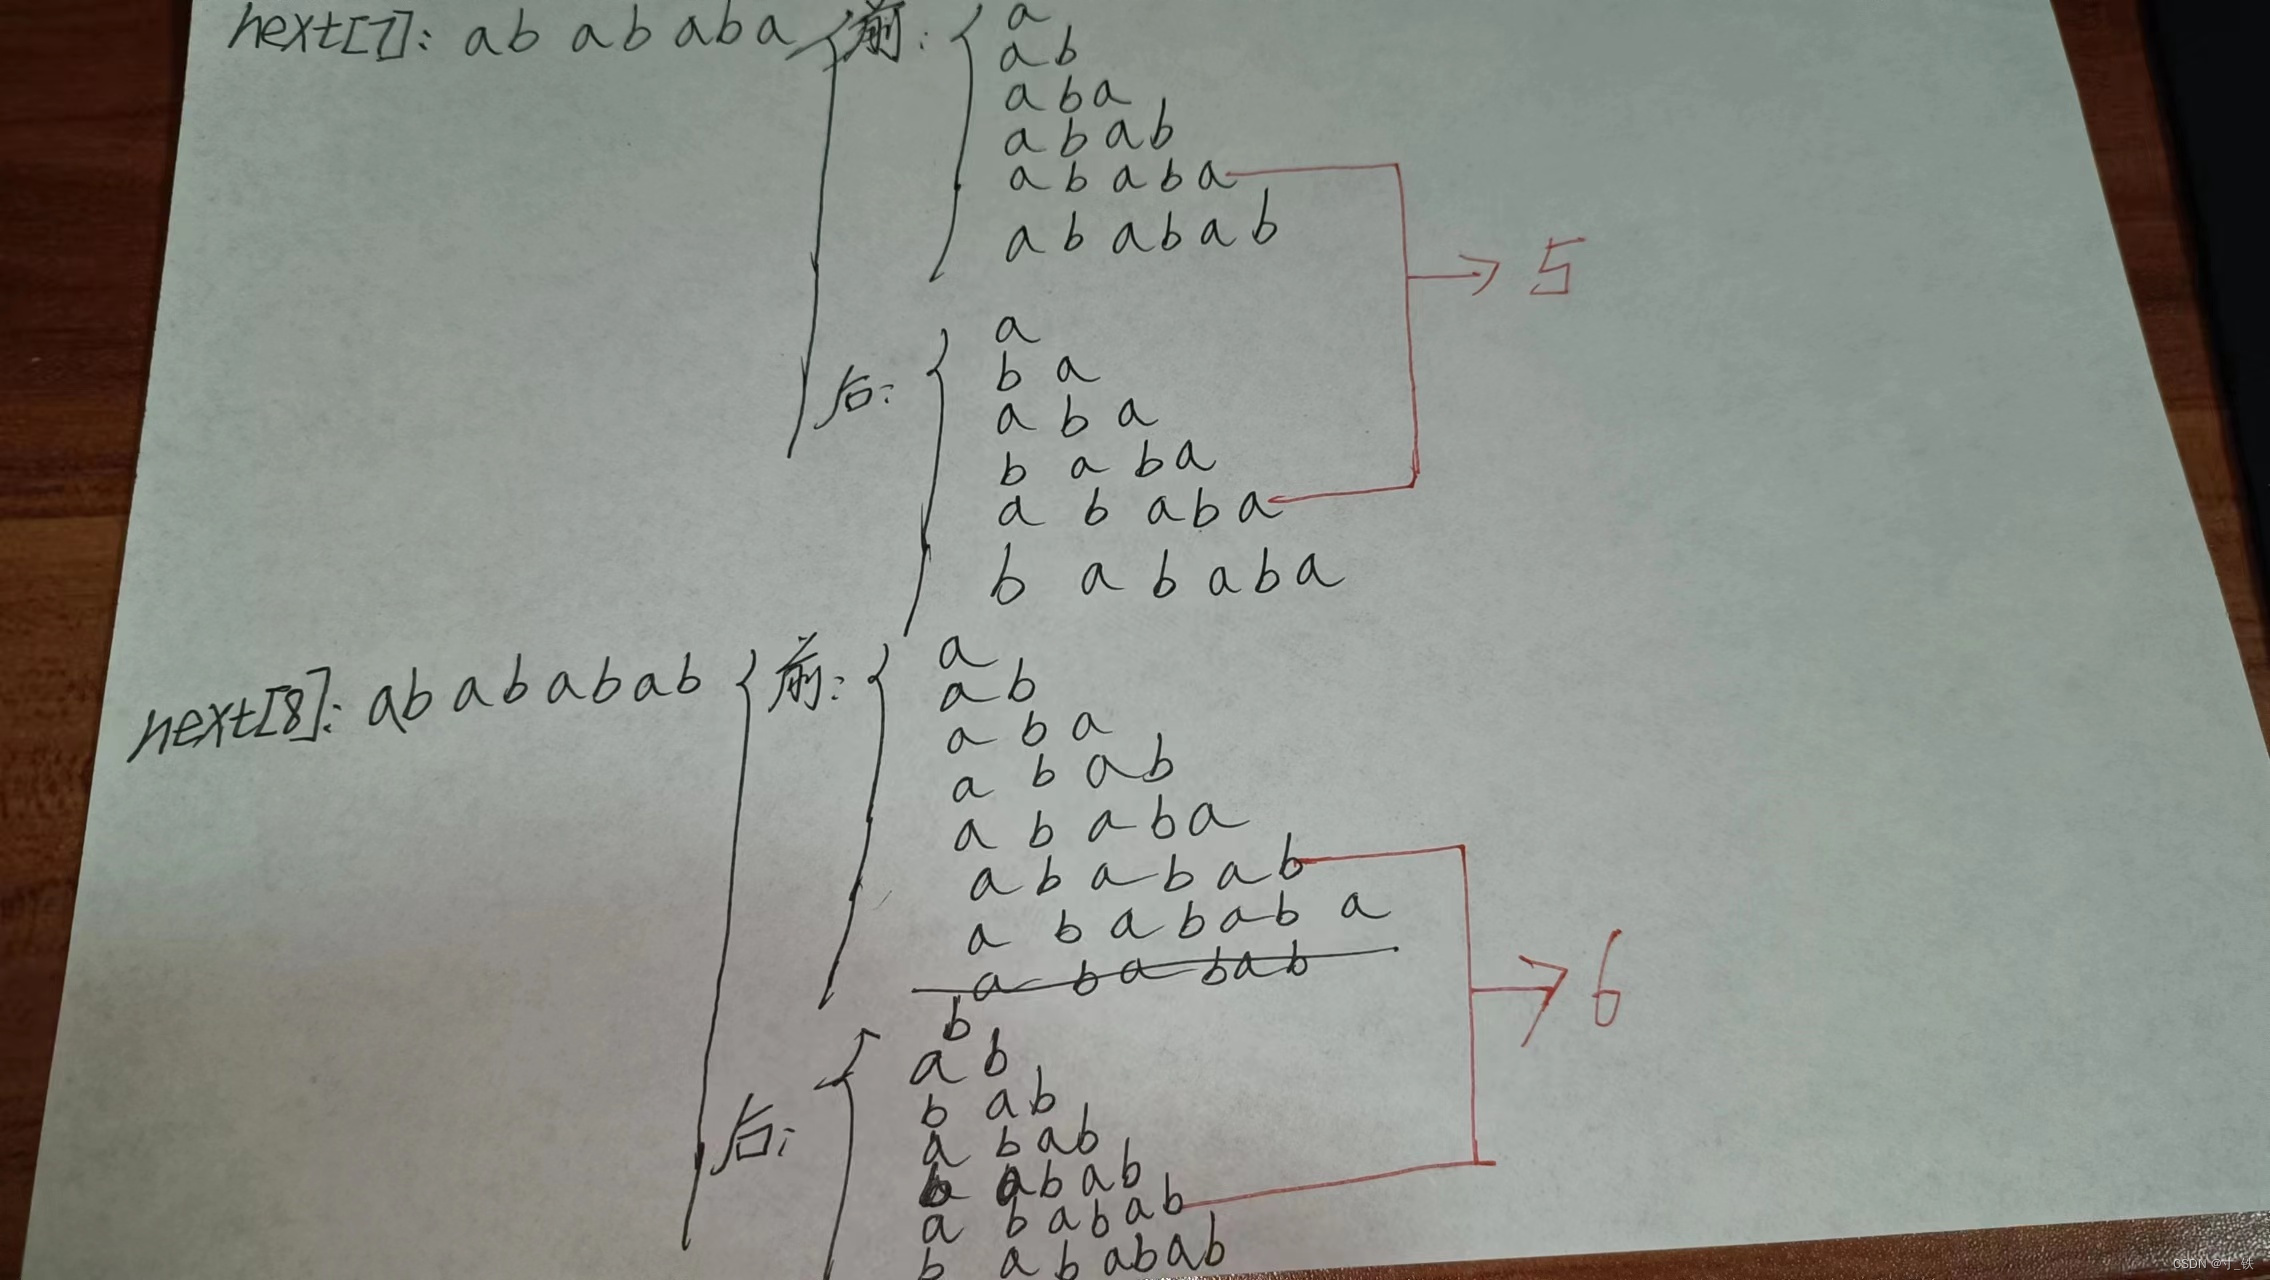 next[7]: ab ab aba 前: a
ab
aba
abab
ababa
ababab
5
后: a
ba
aba
baba
ababa
bababa
next[8]: ab ab ab ab 前: a
ab
aba
abab
ababa
ababab
abababa
ababab
6
后: b
ab
bab
abab
babab
ababab
bababab
CSDN @寸_铁